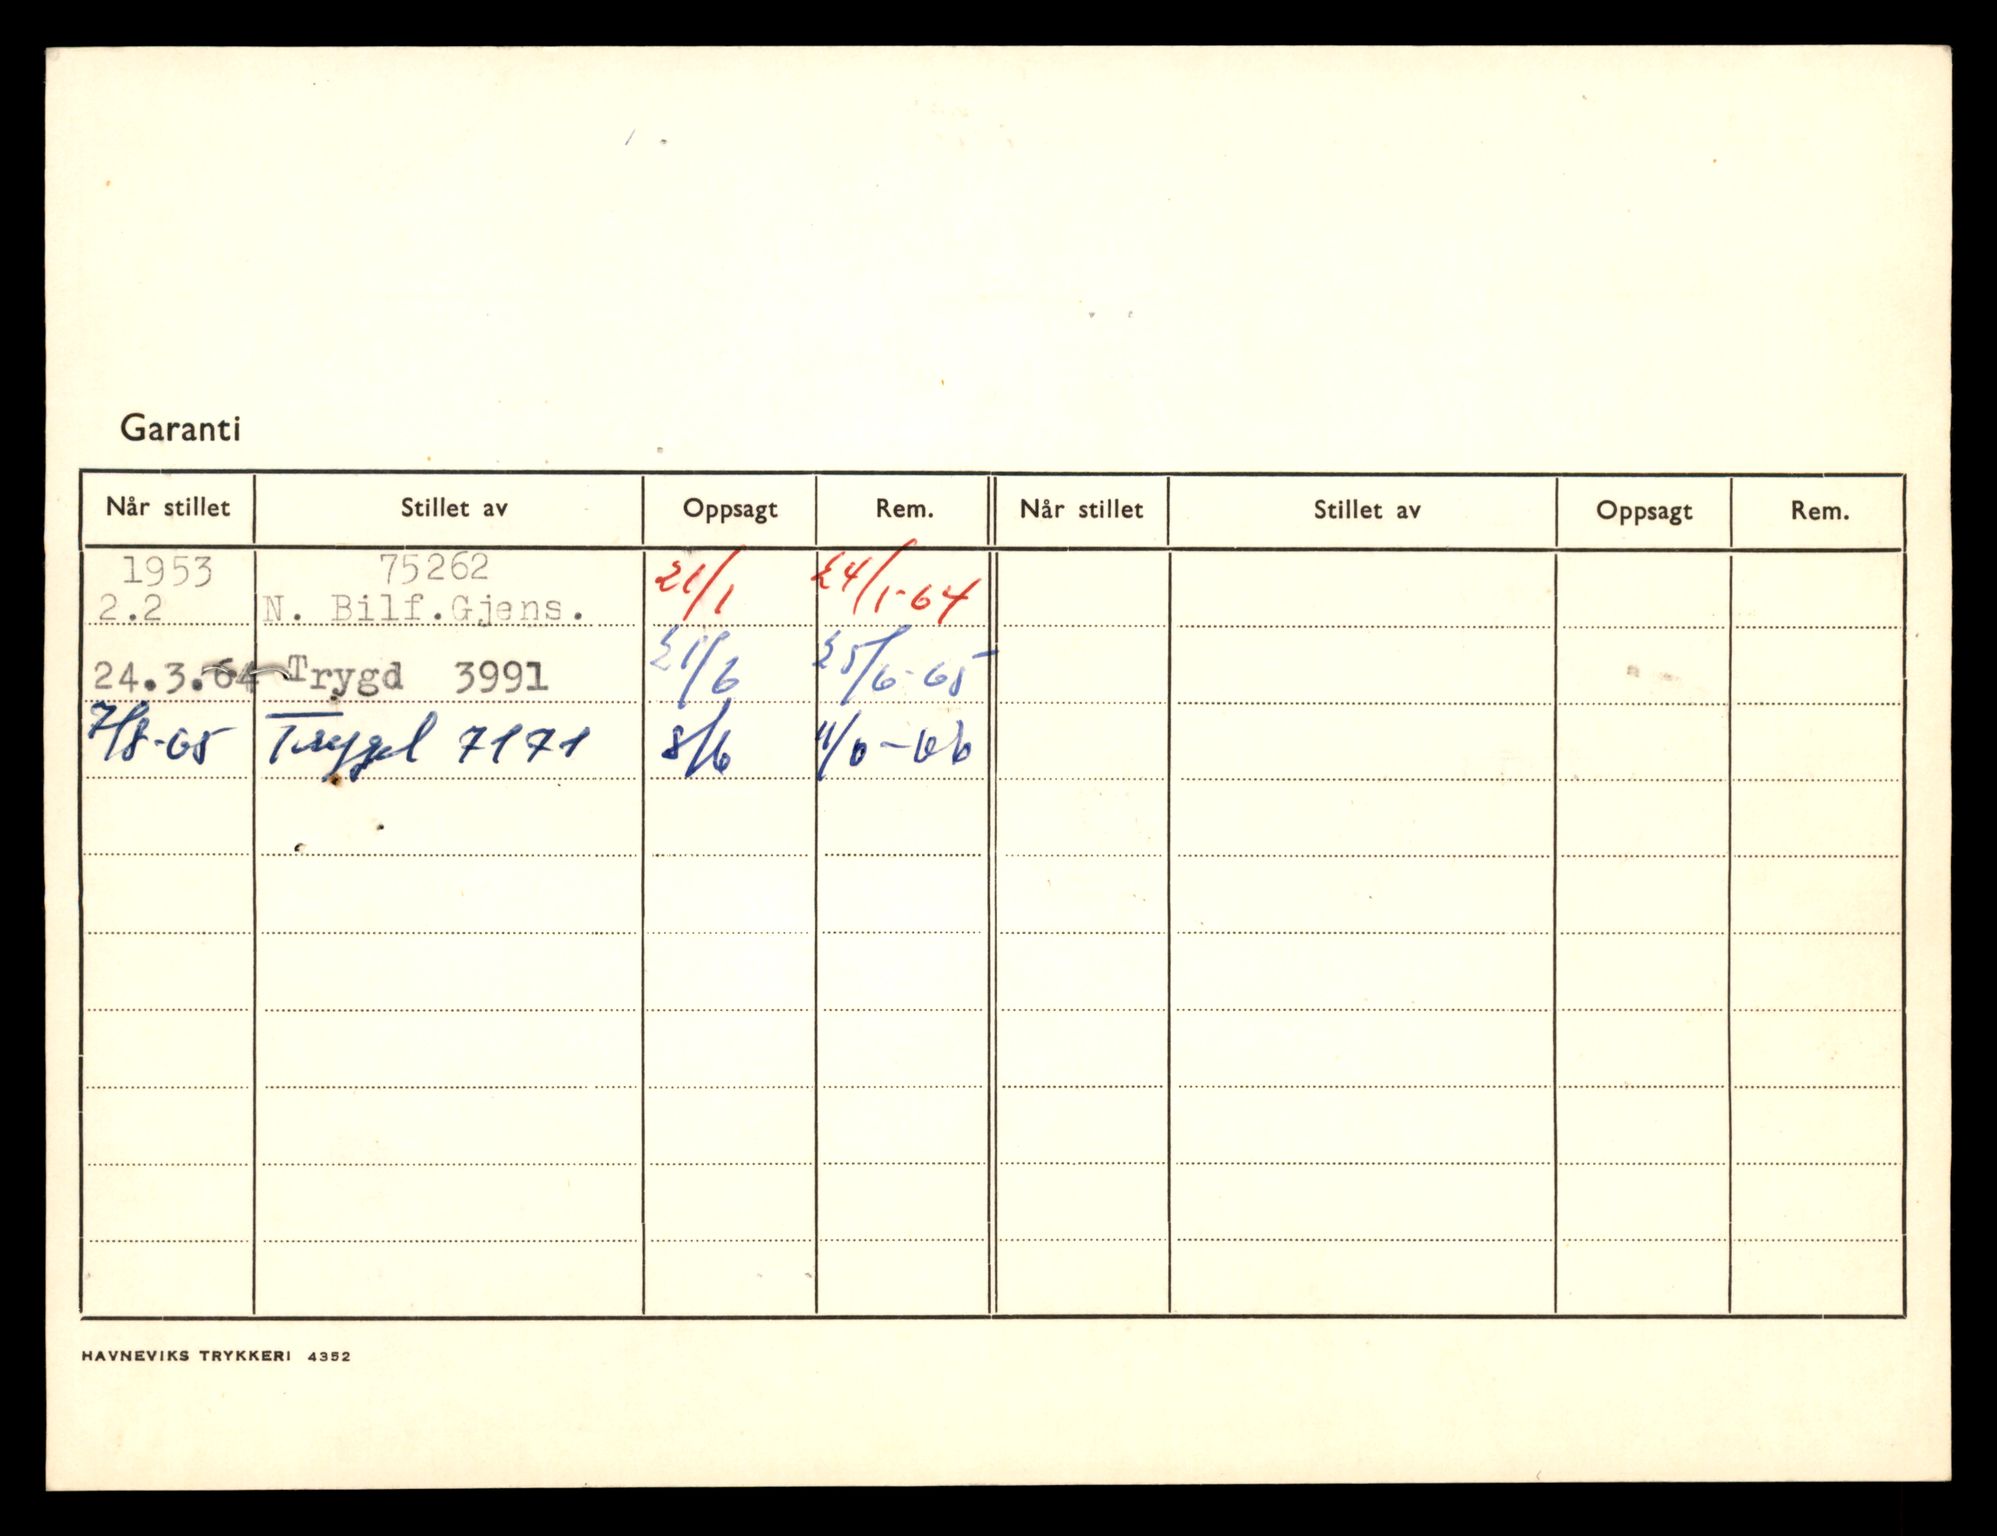 Garanti
Når stillet Stillet av Oppsagt Rem. Når stillet Stillet av Oppsagt Rem.
1953 75262 21/1 24/1-64
2.2 N. Bilf.Gjens.
24.3.64 Trygd 3991 21/6 25/6-65
7/8-65 Trygd 7171 8/6 11/6-66
HAVNEVIKS TRYKKERI 4352